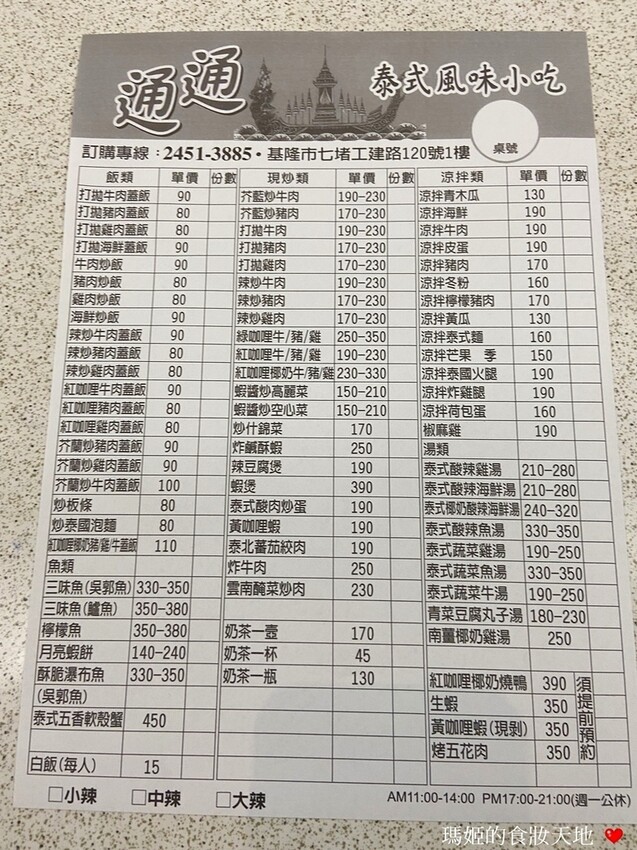 通通
泰式風味小吃
桌號
訂購專線：2451-3885・基隆市七堵工建路120號1樓
飯類 單價 份數
打拋牛肉蓋飯 90
打拋豬肉蓋飯 80
打拋雞肉蓋飯 80
打拋海鮮蓋飯 90
牛肉炒飯 90
豬肉炒飯 80
雞肉炒飯 80
海鮮炒飯 90
辣炒牛肉蓋飯 90
辣炒豬肉蓋飯 80
辣炒雞肉蓋飯 80
紅咖哩牛肉蓋飯 90
紅咖哩豬肉蓋飯 80
紅咖哩雞肉蓋飯 80
芥蘭炒豬肉蓋飯 90
芥蘭炒雞肉蓋飯 80
芥蘭炒牛肉蓋飯 100
炒板條 80
炒泰國泡麵 80
紅咖哩椰奶豬/雞/牛蓋飯 110
魚類
三味魚(吳郭魚) 330-350
三味魚(鱸魚) 350-380
檸檬魚 350-380
月亮蝦餅 140-240
酥脆瀑布魚 330-350
(吳郭魚)
泰式五香軟殼蟹 450
白飯(每人) 15
現炒類 單價 份數
芥藍炒牛肉 190-230
芥藍炒豬肉 170-230
打拋牛肉 190-230
打拋豬肉 170-230
打拋雞肉 170-230
辣炒牛肉 190-230
辣炒豬肉 170-230
辣炒雞肉 170-230
綠咖哩牛/豬/雞 250-350
紅咖哩牛/豬/雞 190-230
紅咖哩椰奶牛/豬/雞 230-330
蝦醬炒高麗菜 150-210
蝦醬炒空心菜 150-210
炒什錦菜 170
炸鹹酥蝦 250
辣豆腐煲 190
蝦煲 390
泰式酸肉炒蛋 190
黃咖哩蝦 190
泰北蕃茄絞肉 190
炸牛肉 250
雲南醃菜炒肉 230
奶茶一壺 170
奶茶一杯 45
奶茶一瓶 130
涼拌類 單價 份數
涼拌青木瓜 130
涼拌海鮮 190
涼拌牛肉 190
涼拌皮蛋 190
涼拌豬肉 170
涼拌冬粉 160
涼拌檸檬豬肉 170
涼拌黃瓜 130
涼拌泰式麵 160
涼拌芒果 季 150
涼拌泰國火腿 190
涼拌炸雞腿 190
涼拌荷包蛋 160
椒麻雞 190
湯類
泰式酸辣雞湯 210-280
泰式酸辣海鮮湯 210-280
泰式椰奶酸辣海鮮湯 240-320
泰式酸辣魚湯 330-350
泰式蔬菜雞湯 190-250
泰式蔬菜魚湯 330-350
泰式蔬菜牛湯 190-250
青菜豆腐丸子湯 180-230
南薑椰奶雞湯 250
紅咖哩椰奶燒鴨 390
生蝦 350
黃咖哩蝦(現剝) 350
烤五花肉 350
須提前預約
□小辣 □中辣 □大辣
AM11:00-14:00 PM17:00-21:00(週一公休)
瑪姬的食妝天地